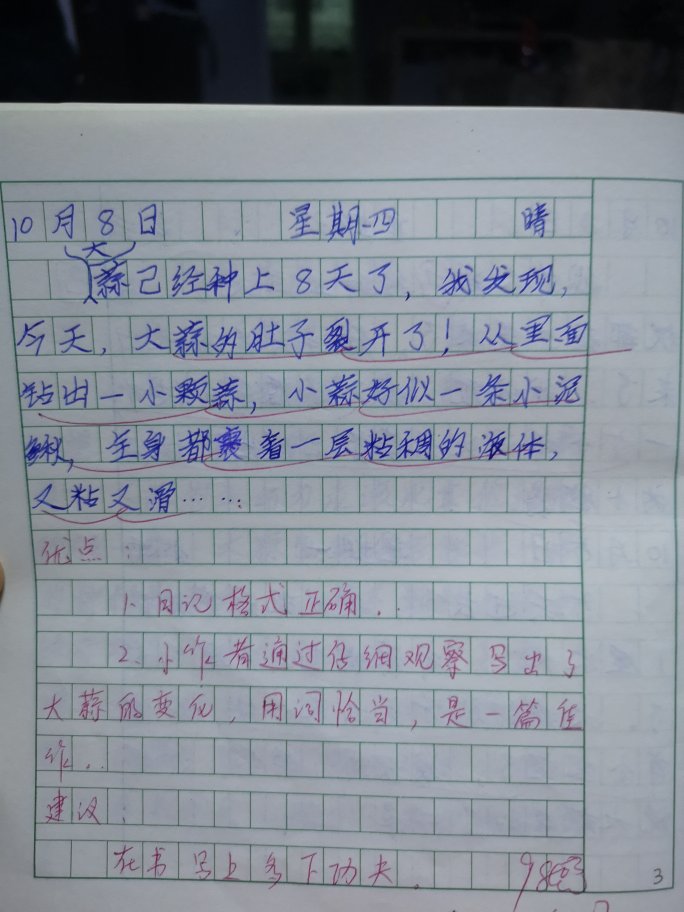 10月8日 星期四 晴
大
蒜已经种上8天了，我发现，
今天，大蒜的肚子裂开了！从里面
钻出一小颗蒜，小蒜好似一条小泥
鳅，全身都裹着一层粘稠的液体，
又粘又滑……
优点：
1、日记格式正确．
2、小作者通过仔细观察写出了
大蒜的变化，用词恰当，是一篇佳
作．
建议：
在书写上多下功夫． 98
3